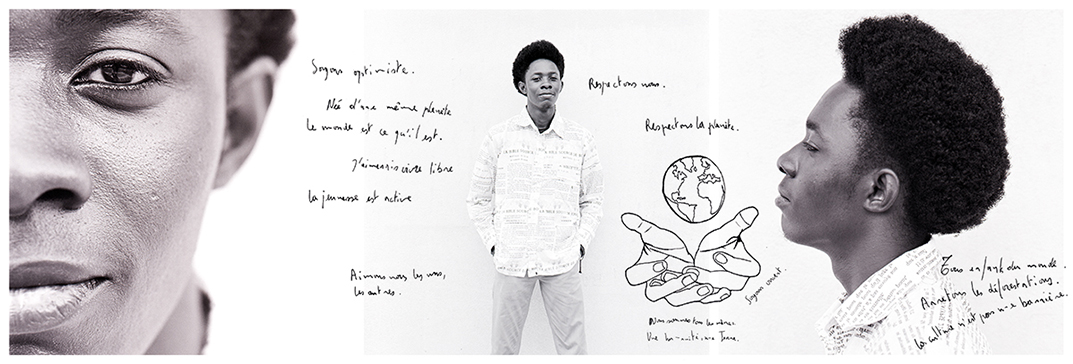 Soyons optimiste.
Née d'une même planète
le monde est ce qu'il est.
J'aimerais vivre libre
la jeunesse est active
Aimons nous les uns,
les autres.
Respectons nous.
Respectons la planète.
Soyons uni
Nous sommes tous les mêmes.
Une humanité une Terre.
Tous enfant du monde.
Arretons les déforestations.
la culture n'est pas une barrière.